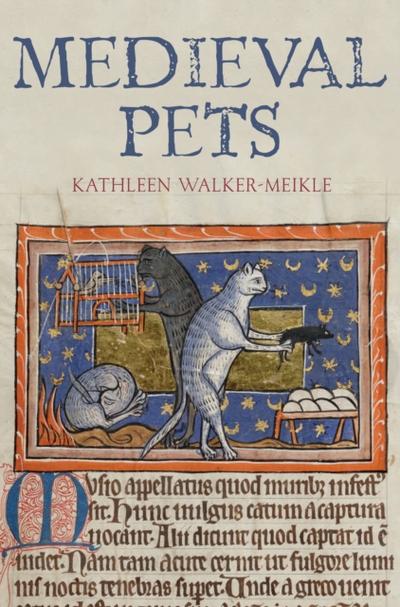 MEDIEVAL
PETS
KATHLEEN WALKER-MEIKLE
Musio appellatus quod murib; infest᾽
sit. Hunc uulgus catum a captura
uocant. Alii dicunt quod captat id ē
uidet. Nam tam acute cernit ut fulgore lumi
nis noctis tenebras supet. Unde a greco uenit